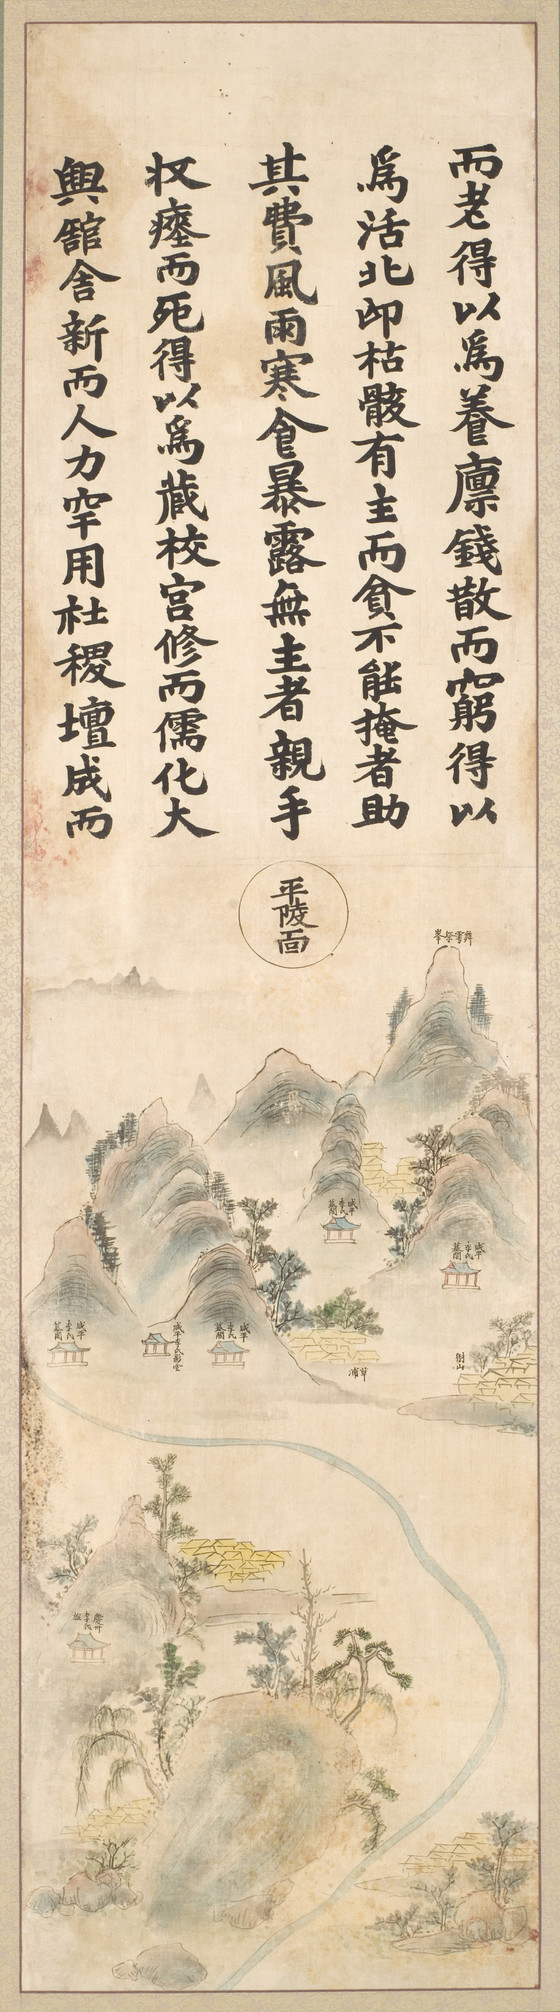 而老得以爲養廩錢散而窮得以
爲活北邙枯骸有主而貧不能掩者助
其費風雨寒食暴露無主者親手
収瘞而死得以爲藏校宮修而儒化大
興舘舍新而人力罕用社稷壇成而
平陵面
咸平李氏墓閣
咸平李氏墓閣
咸平李氏墓閣
咸平李氏影堂
咸平李氏墓閣